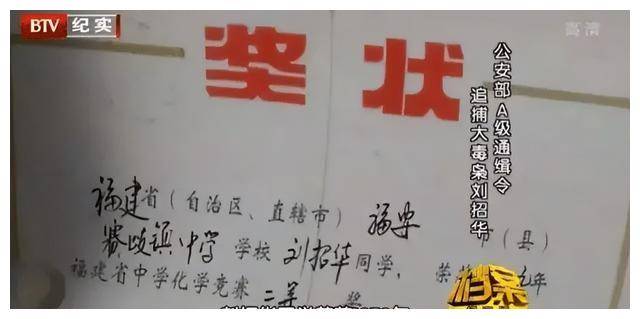 BTV 纪实
高清
奖状
公安部A级通缉令
追捕大毒枭刘招华
福建省(自治区、直辖市) 福安 市(县)
赛岐镇中学 学校 刘招华同学,荣
年
福建省中学化学竞赛 二等 奖
档案